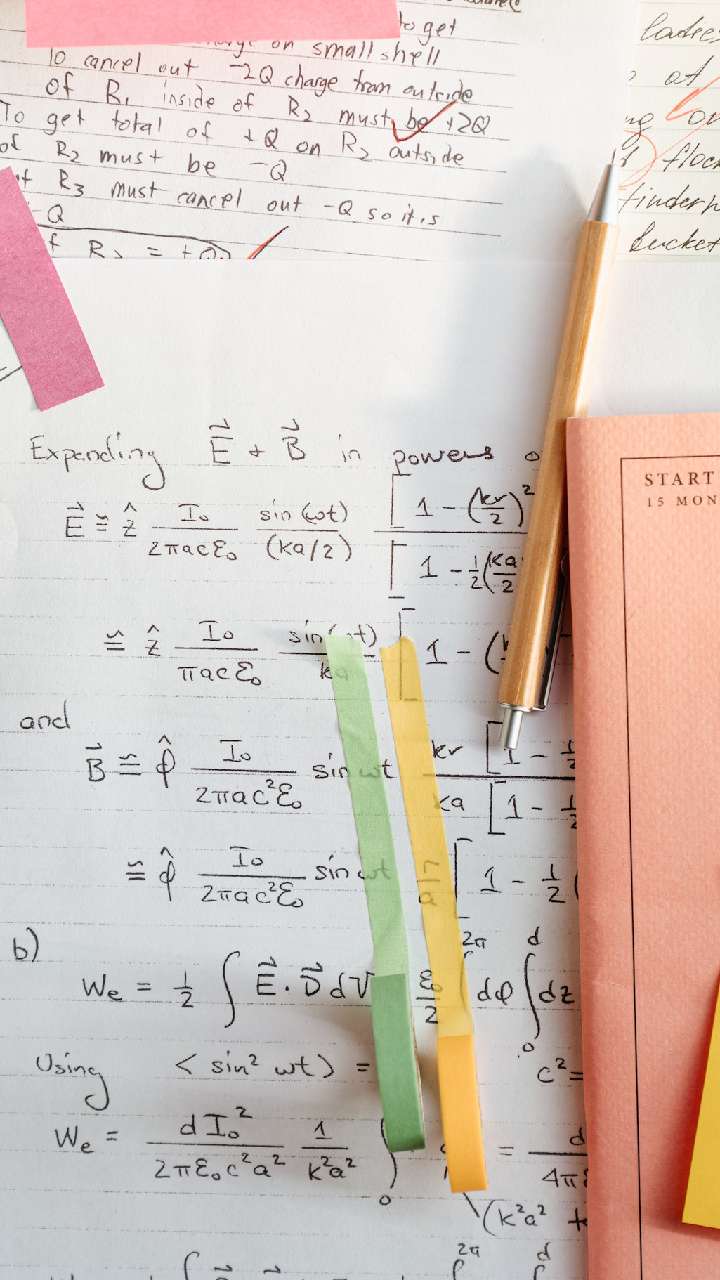 to get
on small shell
To cancel out -2Q charge from outside
of R₁ inside of R₂ must be +2Q
To get total of +Q on R₂ outside
of R₂ must be -Q
R₃ must cancel out -Q so it is
-Q
R₂ = +Q
ladies
at
flock
bucket
START
15 MON
Expending E⃗ + B⃗ in powers
E⃗ ≅ ẑ I₀/(2πacε₀) sin(ωt)/(ka/2) [1 - (kr/2)²]/[1 - ½(ka/2)
≅ ẑ I₀/(πacε₀) sin(ωt)/ka [1 - (
and
B⃗ ≅ φ̂ I₀/(2πac²ε₀) sin ωt kr/ka [1 - ½]/[1 - ½]
≅ φ̂ I₀/(2πac²ε₀) sin ωt r/a [1 - ½ (
b)
We = ½ ∫ E⃗ · D⃗ dV ε₀/2 ∫ 2π dφ ∫₀ᵈ dz
Using < sin² ωt > = c² =
We = dI₀²/(2πε₀c²a²) 1/(k²a²) ∫₀ = d/4πε
(k²a² +
2π d